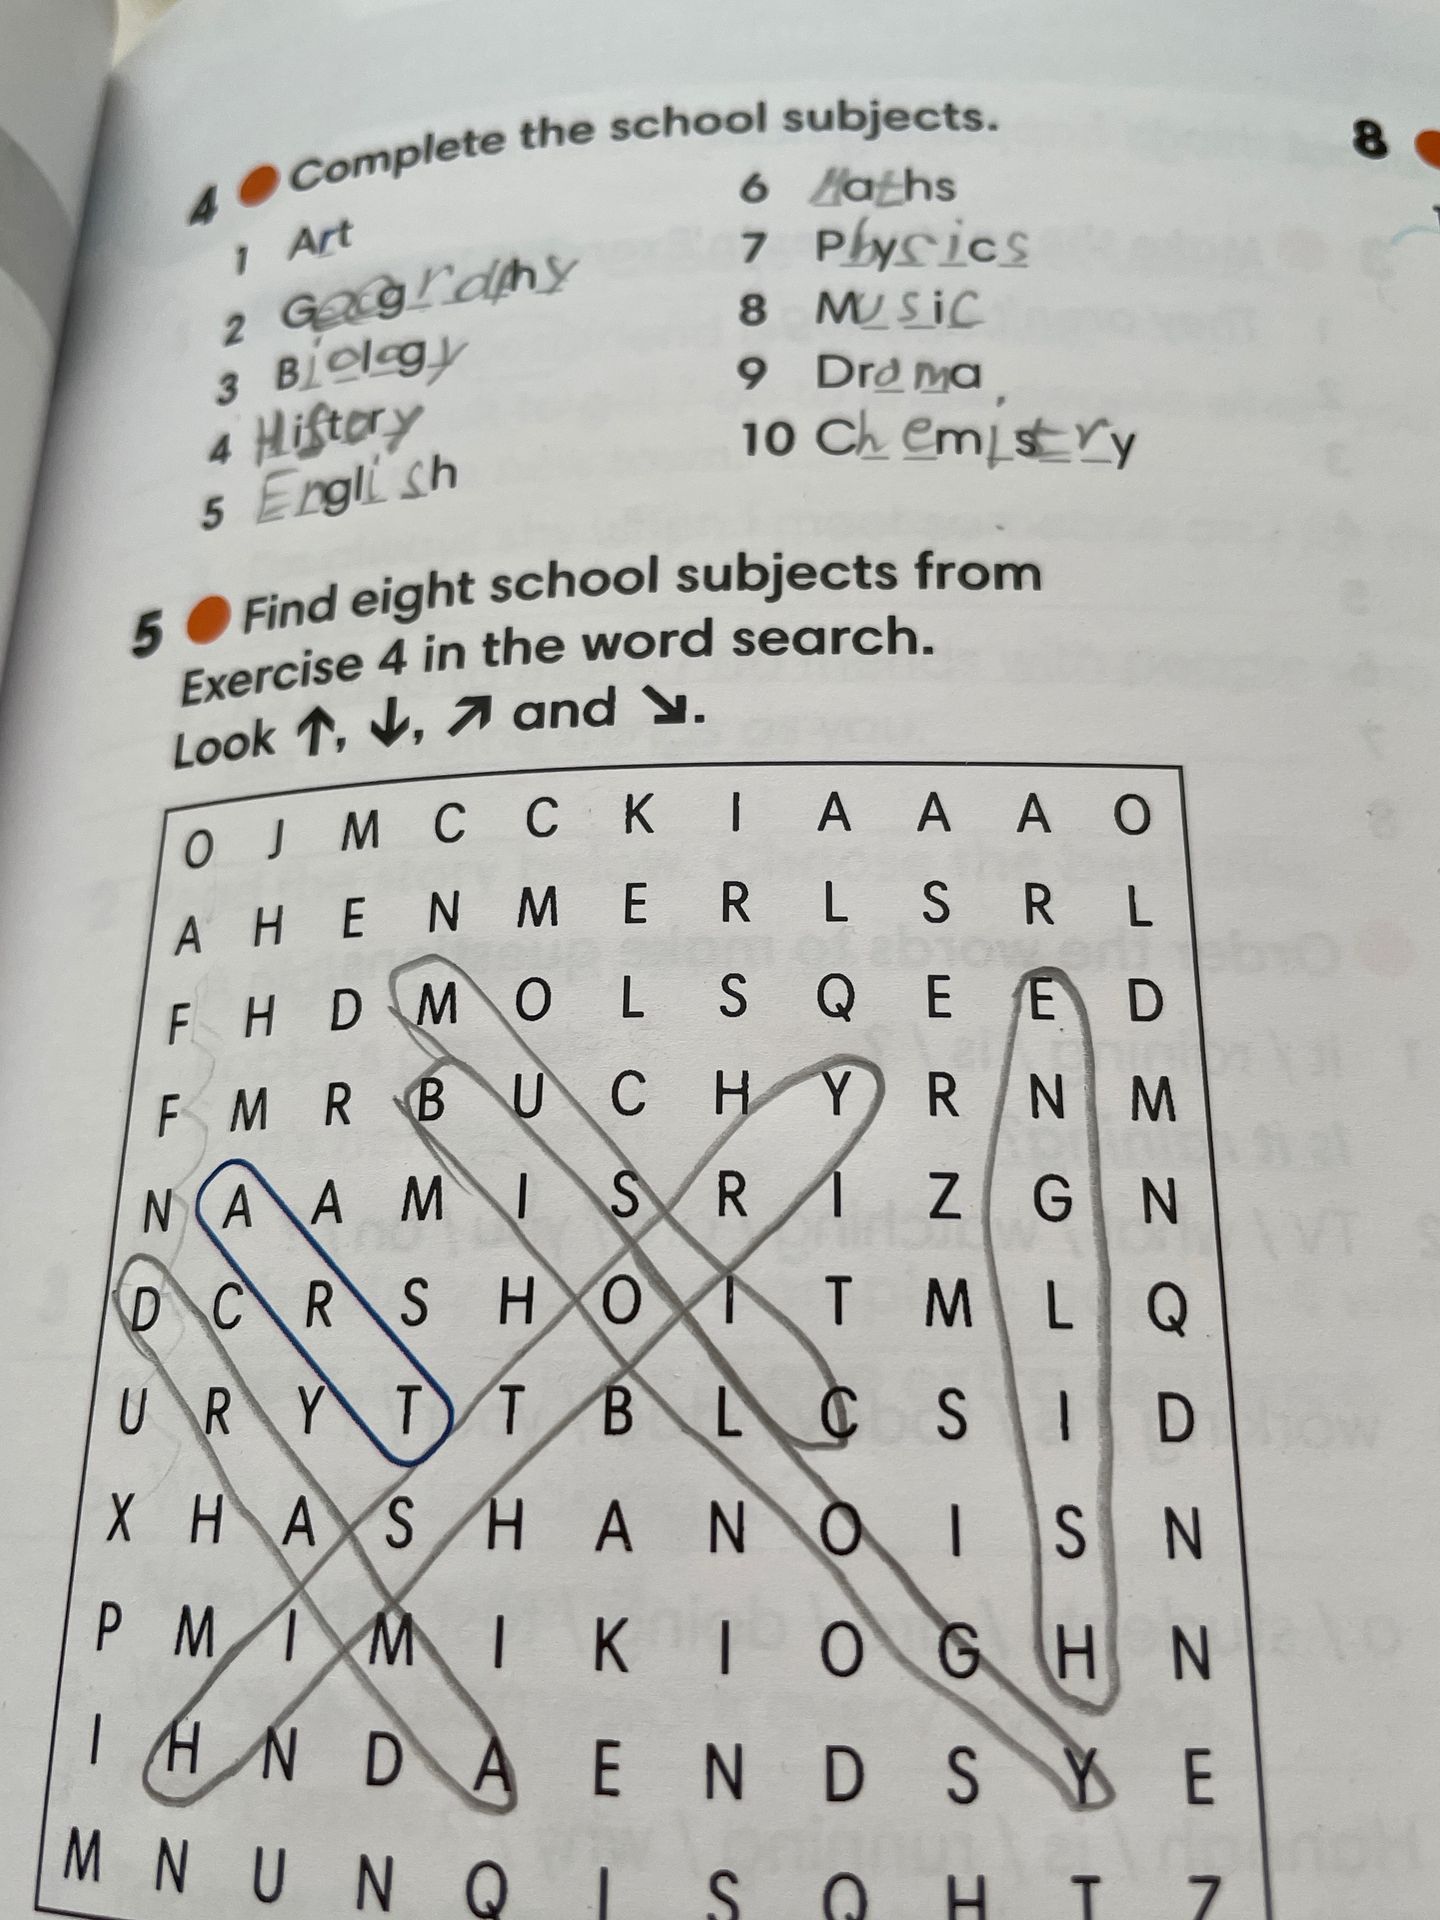 4 Complete the school subjects.
1 Art
2 Geography
3 Biology
4 History
5 English
6 Maths
7 Physics
8 Music
9 Drama
10 Chemistry
8
5 Find eight school subjects from
Exercise 4 in the word search.
Look ↑, ↓, ↗ and ↘.
O J M C C K I A A A O
A H E N M E R L S R L
F H D M O L S Q E E D
F M R B U C H Y R N M
N A A M I S R I Z G N
D C R S H O I T M L Q
U R Y T T B L C S I D
X H A S H A N O I S N
P M I M I K I O G H N
I H N D A E N D S Y E
M N U N Q I S O H T Z